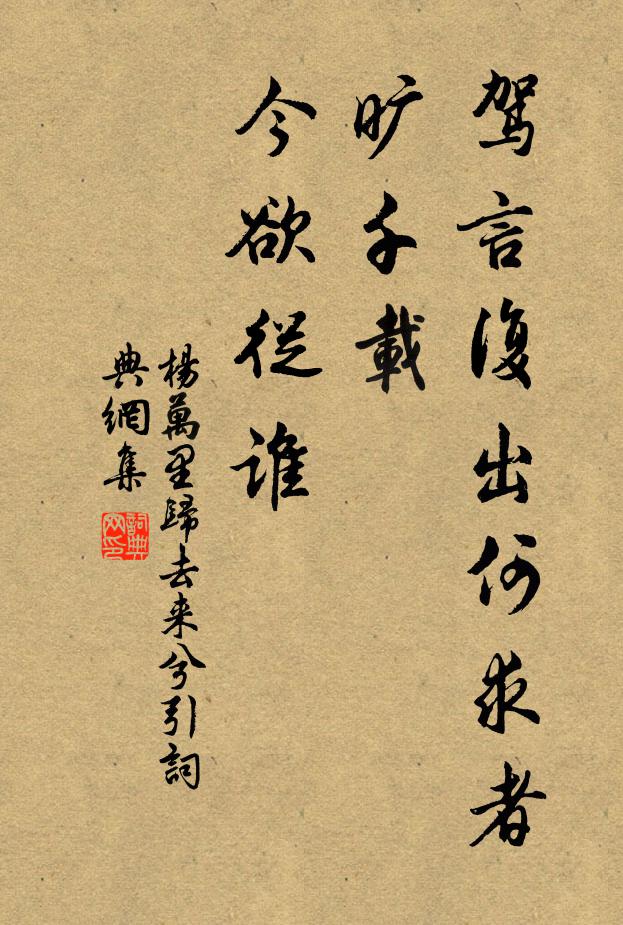 驾言復出何求者
旷千載
今欲從誰
楊萬里歸去来兮引詞
典網集
詞典
网印